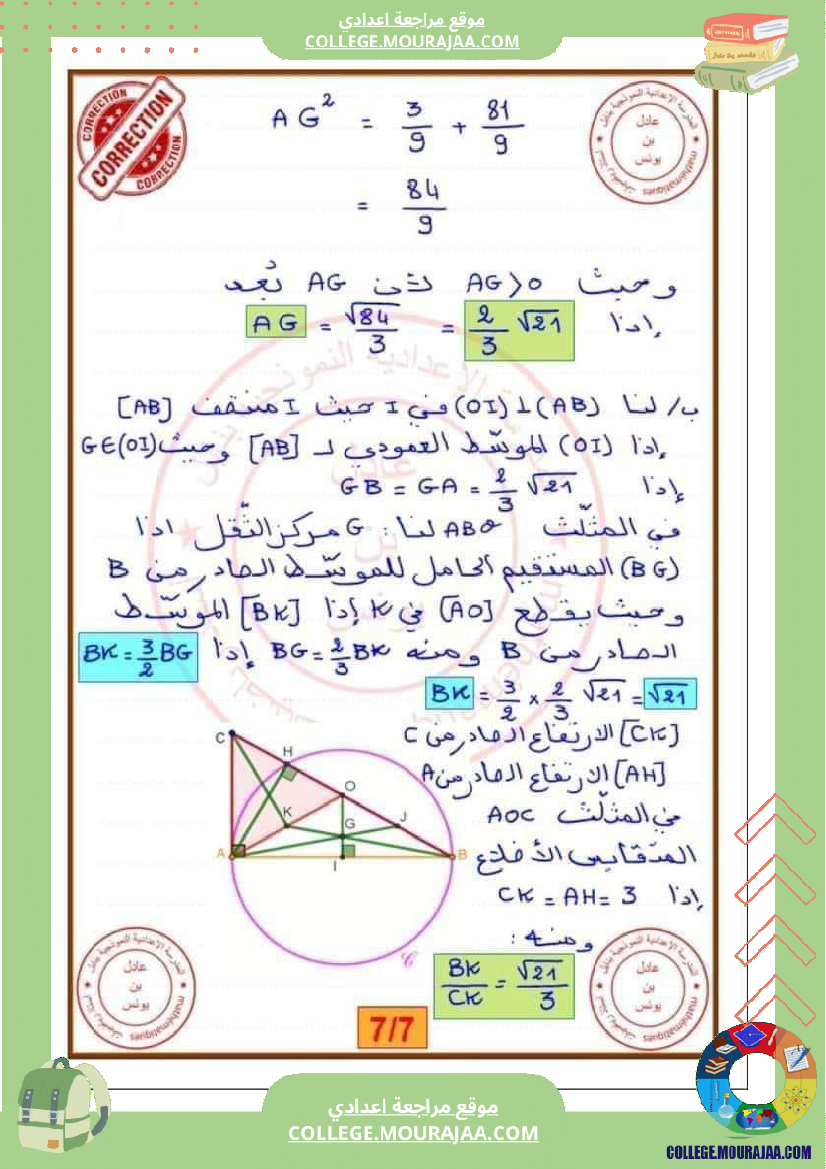 موقع مراجعة اعدادي
COLLEGE.MOURAJAA.COM
CORRECTION
CORRECTION
CORRECTION
عادل
بن
يونس
mathématiques
AG² = 3/9 + 81/9
= 84/9
وحيث AG>0 لأن AG بُعد
إذا AG = √84/3 = 2/3 √21
ب/ لنا (AB)⊥(OI) في I حيث I منتصف [AB]
إذا (OI) الموسّط العمودي لـ [AB] وحيث G∈(OI)
إذا GB = GA = 2/3 √21
في المثلّث ABO لنا: G مركز الثّقل اذا
(BG) المستقيم الحامل للموسّط الصادر من B
وحيث يقطع [AO] في K إذا [BK] الموسّط
الصادر من B ومنه BG = 2/3 BK إذا BK = 3/2 BG
BK = 3/2 × 2/3 √21 = √21
[CK] الارتفاع الصادر من C
[AH] الارتفاع الصادر من A
في المثلّث AOC
المتقايس الأضلاع
إذا CK = AH = 3
ومنه :
BK/CK = √21/3
C
H
O
K
G
J
A
I
B
𝒞
عادل
بن
يونس
mathématiques
عادل
بن
يونس
mathématiques
7/7
موقع مراجعة اعدادي
COLLEGE.MOURAJAA.COM
COLLEGE.MOURAJAA.COM